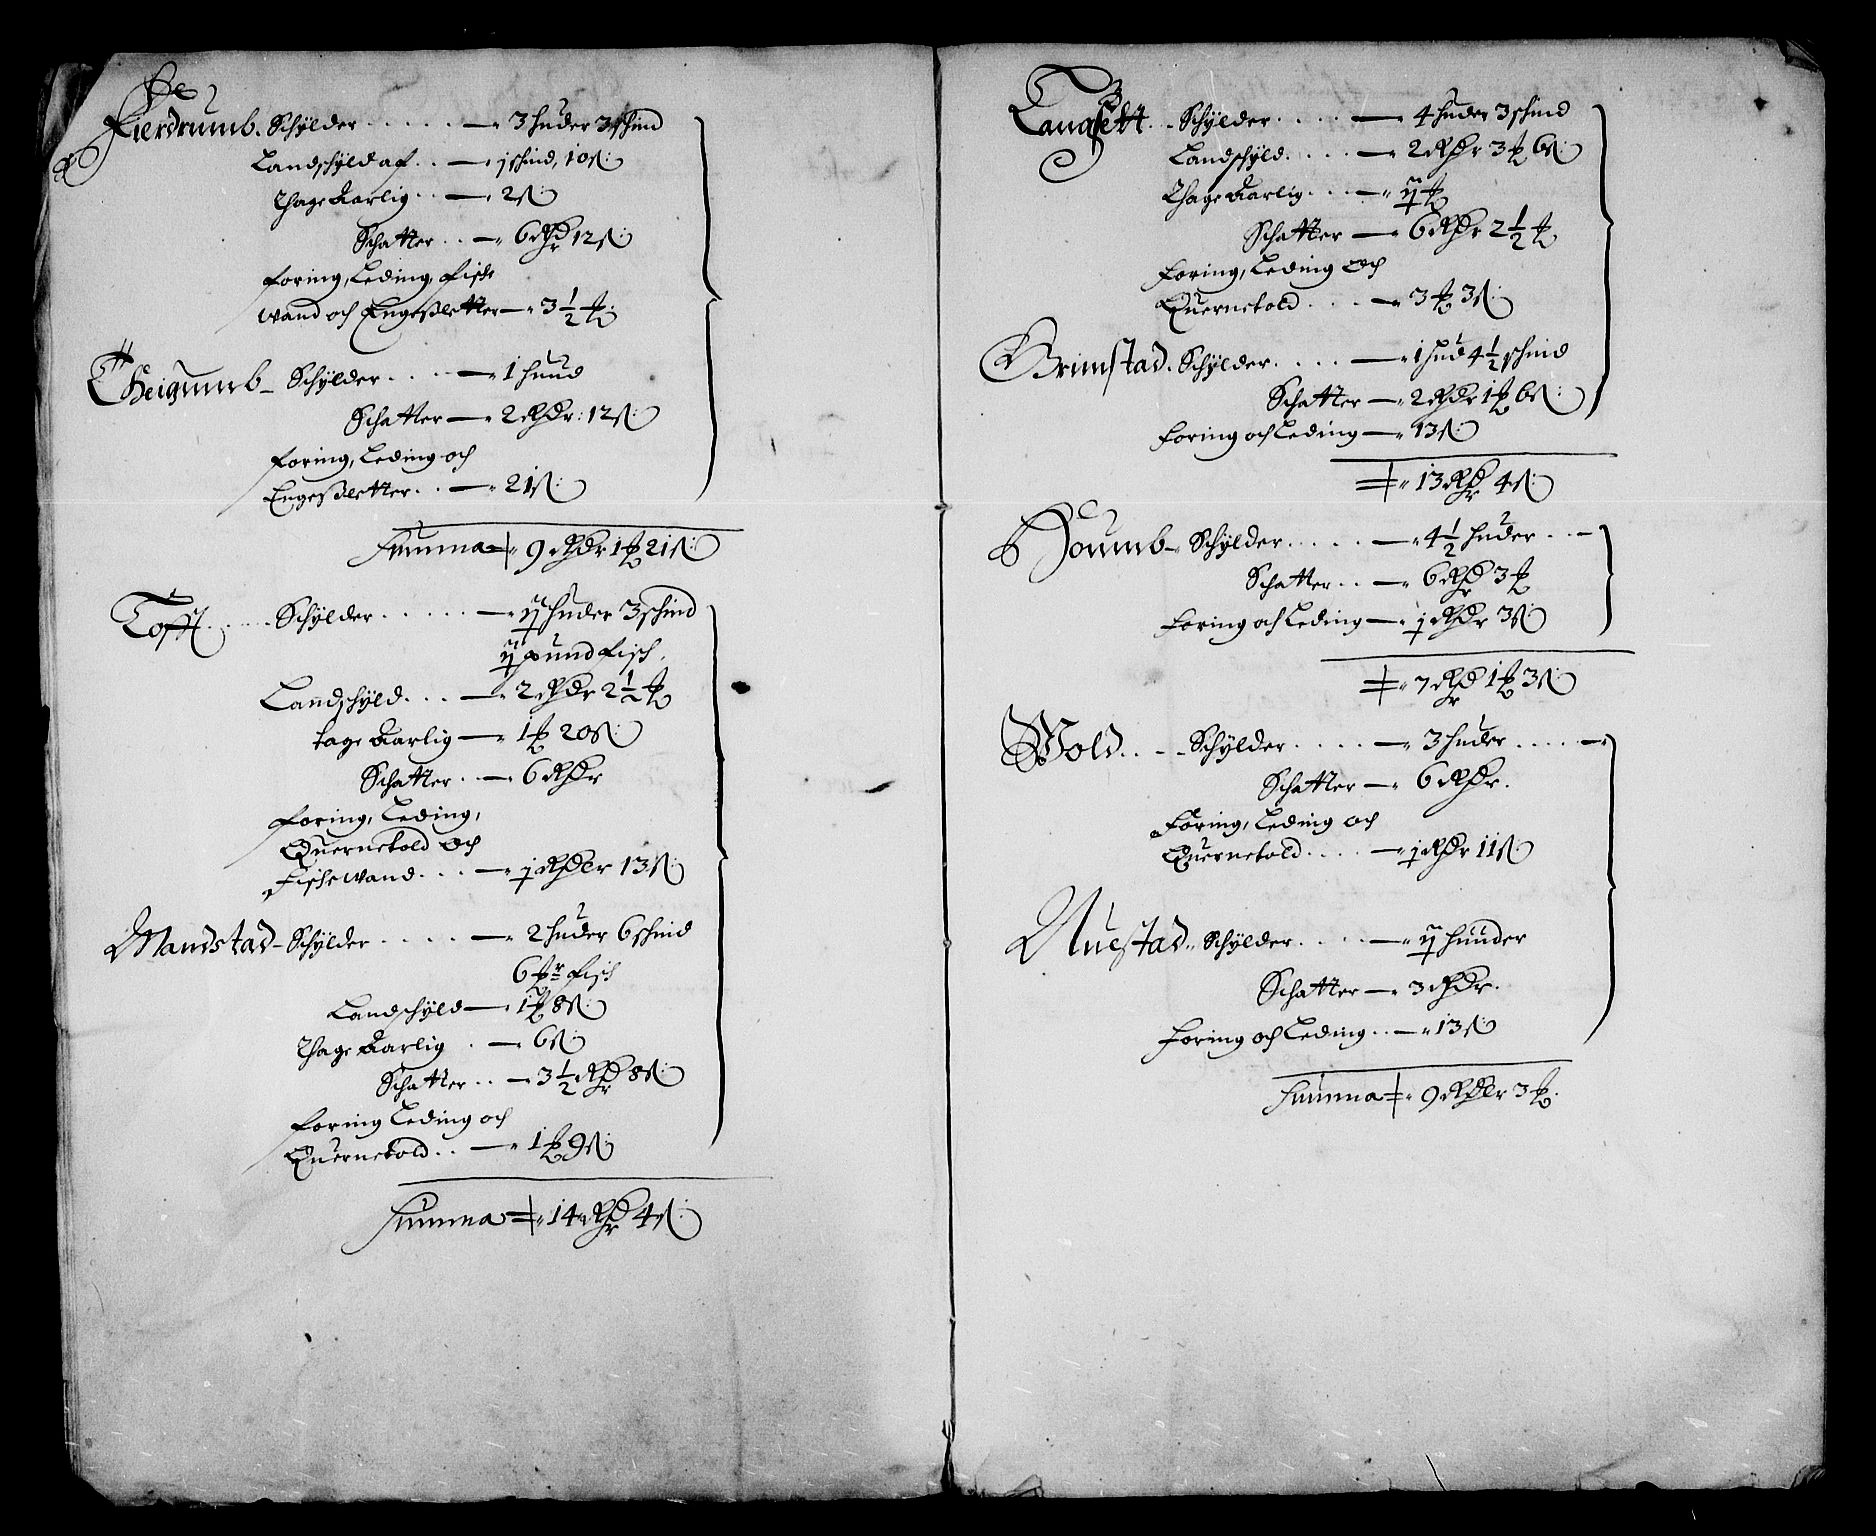 Fierdrumb. Schÿlder ..... — 3 huder 3 schind
Landschÿld af .. — j schind, 10 ß:
Thage Aarlig .. — 2 ß:
Schatter .. — 6 Rhdr 12 ß:
foring, Leding, fische
wand och Engeßletter — 3 1/2 ℔:
Theigumb – Schÿlder .... — 1 huud
Schatter — 2 Rhdr: 12 ß:
foring, Leding och
Engeßletter .. — 21 ß:
Summa = 9 Rhdr 1 ℔ 21 ß:
Tofft .... Schÿlder ..... — ij huder 3 schind
ij pund fisch.
Landschÿld ... — 2 Rhdr 2 1/2 ℔
tage Aarlig — 1 ℔ 20 ß:
Schatter .. — 6 Rhdr
foring, Leding,
Quernetold och
Fischewand ... — j Rhdlr 13 ß:
Mandstad – Schÿlder .... — 2 huder 6 schind
6 ℔r fisch
Landschÿld — 1 ℔ 8 ß:
Thage Aarlig . — 6 ß:
Schatter .. — 3 1/2 Rhdr 8 ß:
foring Leding och
Quernetold .. — 1 ℔ 9 ß:
Summa = 14 Rhdr 4 ß:
Langsett .. Schÿlder .... — 4 huder 3 schind
Landschÿld .... — 2 Rhdr 3 ℔ 6 ß:
Thage Aarlig ... — ij ℔
Schatter — 6 Rhdr 2 1/2 ℔
foring, Leding och
Quernetold ... — 3 ℔ 3 ß:
Grimstad. Schÿlder .... — 1 hud 4 1/2 schind
Schatter — 2 Rhdr 1 ℔ 6 ß:
foring och Leding — 13 ß:
= 13 Rhdr 4 ß:
Houmb – Schÿlder ..... — 4 1/2 huder ... —
Schatter .. — 6 Rhdr 3 ℔
foring och Leding — j Rhdr 3 ß:
= 7 Rhdr 1 ℔ 3 ß:
Wold ... Schÿlder .... — 3 huder .... —
Schatter — 6 Rhdr.
Foring, Leding och
Quernetold .... — j Rhdr 11 ß:
Nuestad. Schÿlder .... — ij hunder
Schatter — 3 Rhdr.
foring och Leding .. — 13 ß:
Summa = 9 Rhdlr 3 ℔.